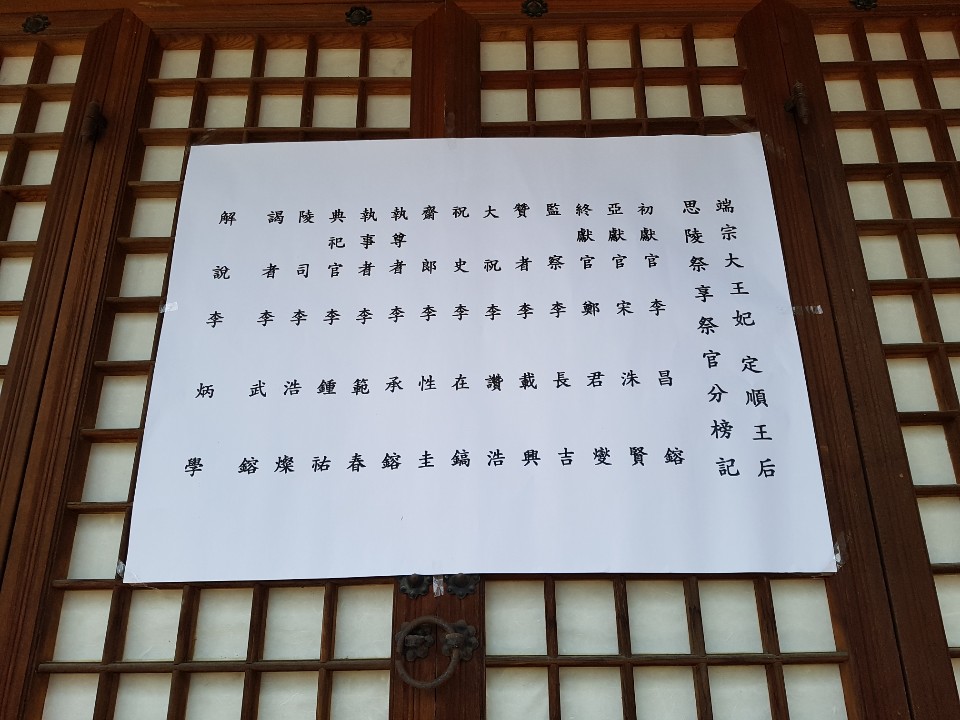 端宗大王妃 定順王后
思陵祭享祭官分榜記
初獻官 李昌鎔
亞獻官 宋洙賢
終獻官 鄭君燮
監察 李長吉
贊者 李載興
大祝 李讚浩
祝史 李在鎬
齋郞 李性圭
執尊者 李承鎔
執事者 李範春
典祀官 李鍾祐
陵司 李浩燦
謁者 李武鎔
解說 李炳學